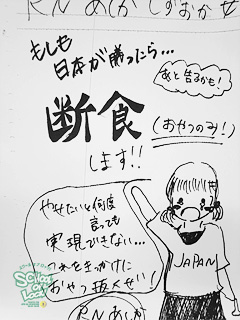 RN あしか しずおか 女
もしも
日本が勝ったら…
あと告るかも!
断食
(おやつのみ!)
します!!
やせたいと何度
言っても
実現できない…
これをきっかけに
おやつ抜くぜい!
JAPAN
SCHOOL
OF
LOCK!
RN あしか